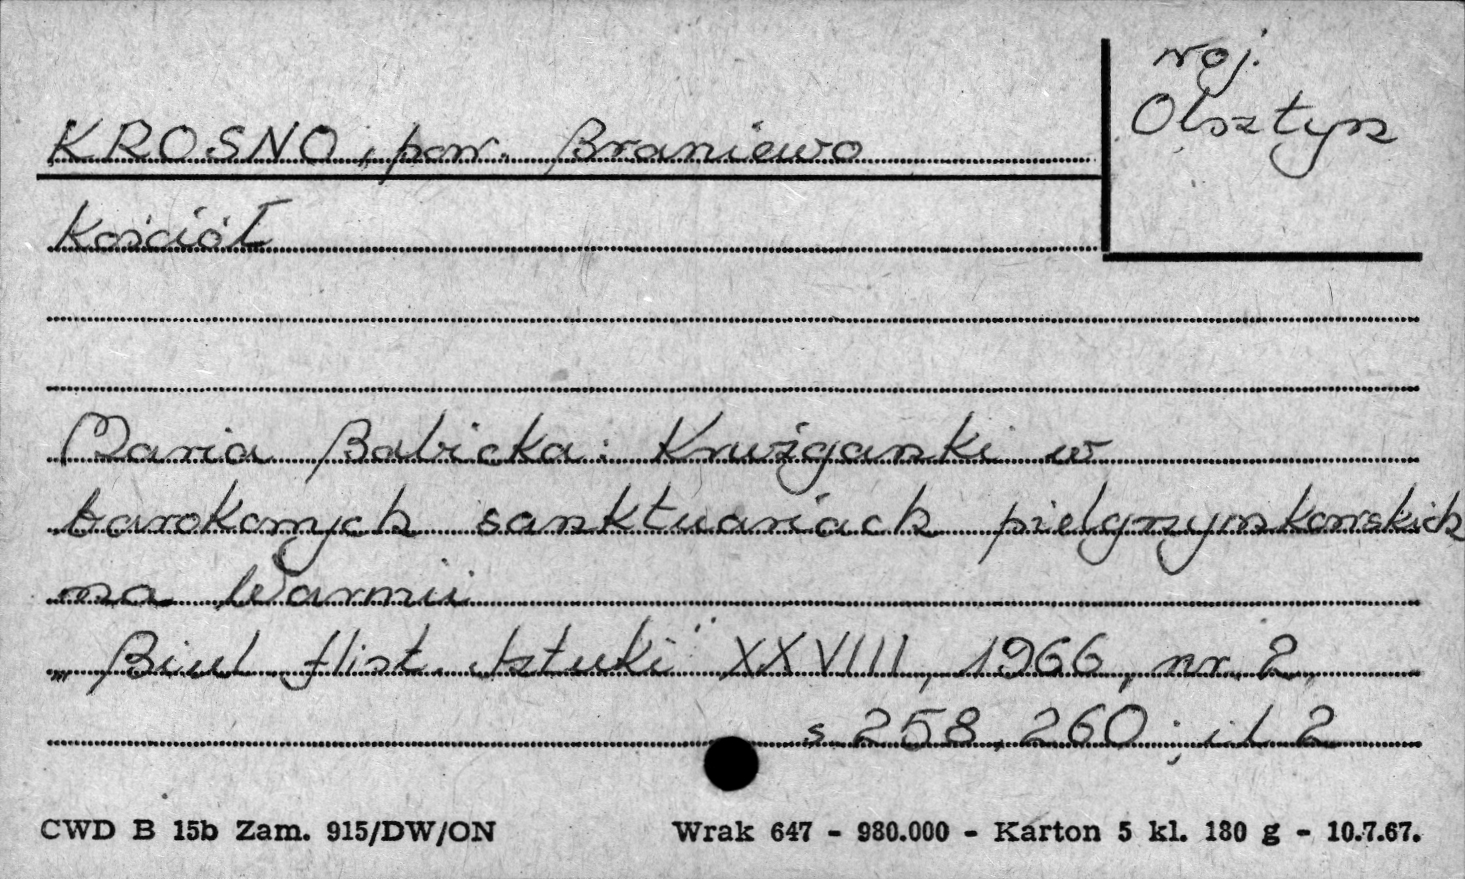 woj.
Olsztyn
KROSNO, pow. Braniewo
Kościół
Maria Babicka: Krużganki w
barokowych sanktuariach pielgrzymkowskich
na Warmii
„Biul. Hist. Sztuki" XXVIII, 1966, nr. 2,
s. 258, 260; il. 2
CWD B 15b Zam. 915/DW/ON
Wrak 647 - 980.000 - Karton 5 kl. 180 g - 10.7.67.